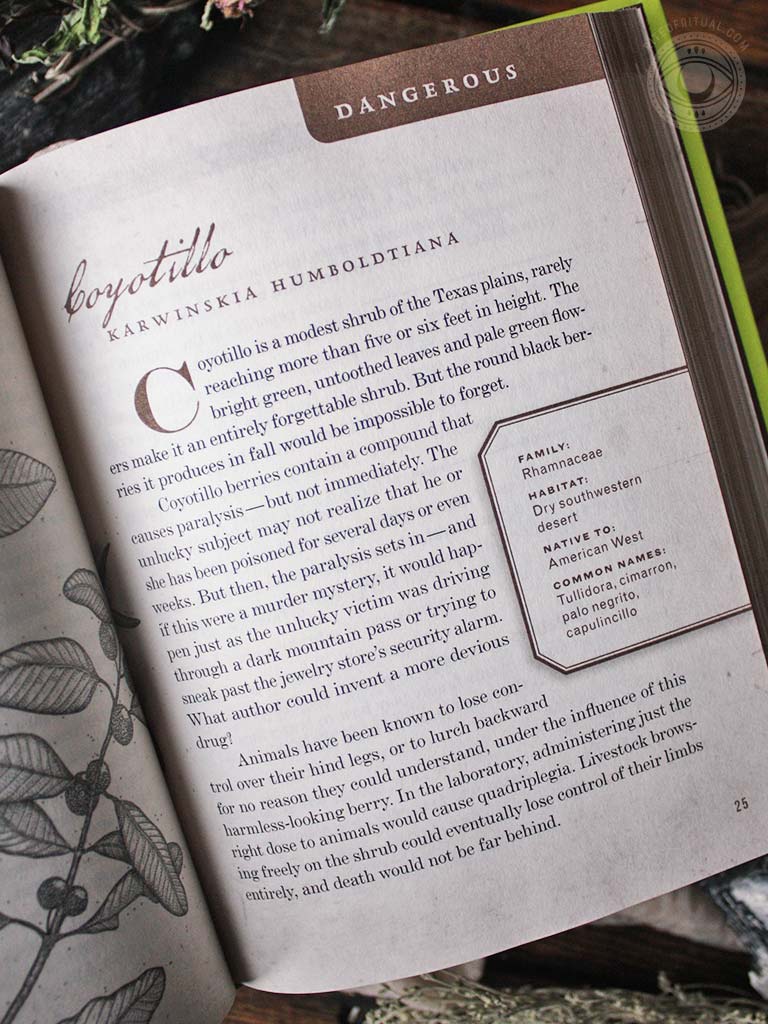 DANGEROUS
Coyotillo
KARWINSKIA HUMBOLDTIANA
Coyotillo is a modest shrub of the Texas plains, rarely
reaching more than five or six feet in height. The
bright green, untoothed leaves and pale green flow-
ers make it an entirely forgettable shrub. But the round black ber-
ries it produces in fall would be impossible to forget.
Coyotillo berries contain a compound that
causes paralysis—but not immediately. The
unlucky subject may not realize that he or
she has been poisoned for several days or even
weeks. But then, the paralysis sets in—and
if this were a murder mystery, it would hap-
pen just as the unlucky victim was driving
through a dark mountain pass or trying to
sneak past the jewelry store's security alarm.
What author could invent a more devious
drug?
Animals have been known to lose con-
trol over their hind legs, or to lurch backward
for no reason they could understand, under the influence of this
harmless-looking berry. In the laboratory, administering just the
right dose to animals would cause quadriplegia. Livestock brows-
ing freely on the shrub could eventually lose control of their limbs
entirely, and death would not be far behind.
FAMILY:
Rhamnaceae
HABITAT:
Dry southwestern
desert
NATIVE TO:
American West
COMMON NAMES:
Tullidora, cimarron,
palo negrito,
capulincillo
25